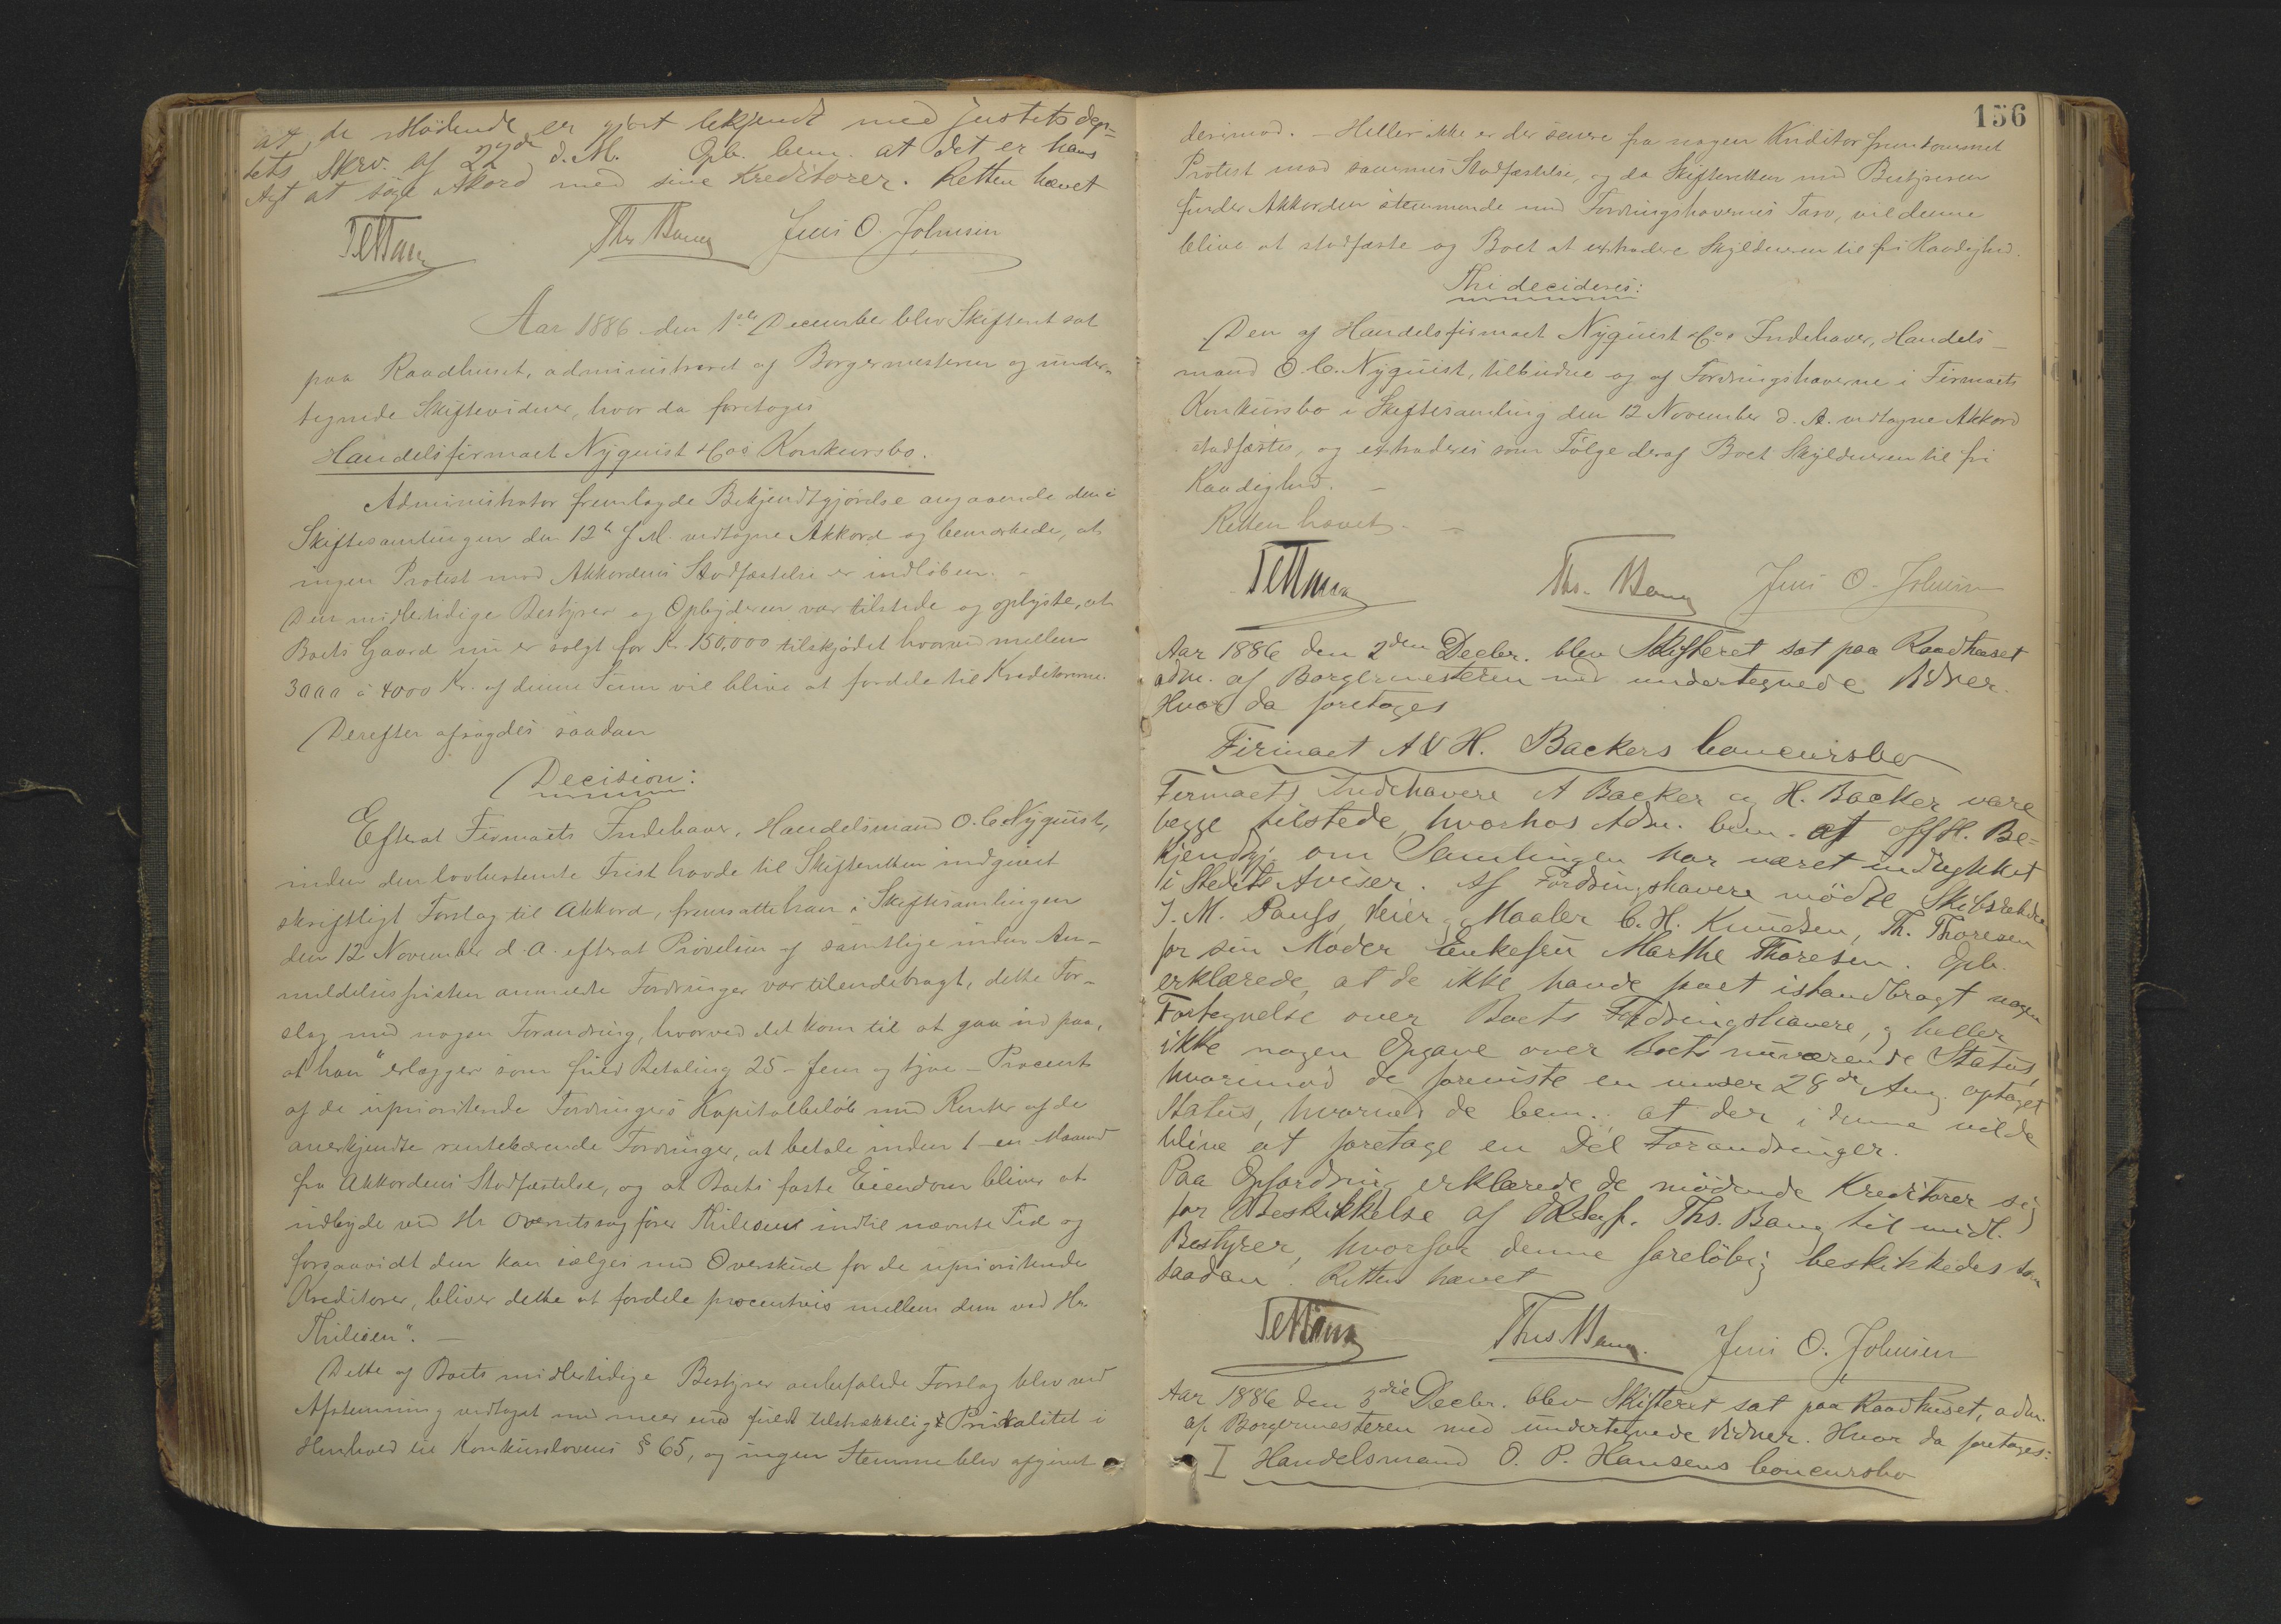 at de Mödende er gjort bekjendt med Justitsdep=
tets Skrv. af 22de d. M. Opb. bem. at det er hans
Agt at söge Akord med sine Kreditorer. Retten hævet
Ths Bang Jens O. Johnsen
Aar 1886 den 1ste December blev Skifteret sat
paa Raadhuset, administreret af Borgermesteren og under-
tegnede Skiftevidner, hvor da foretoges
Handelsfirmaet Nyquist & Cos Konkursbo.
Administrator fremlagde Bekjendtgjörelse angaaende den i
Skiftesamlingen den 12te f. M. vedtagne Akkord og bemærkede, at
ingen Protest mod Akkordens Stadfæstelse er indløben. –
Den midlertidige Bestyrer og Opbyderen var tilstede og oplyste, at
Boets Gaard nu er solgt for Kr. 150,000 tilskjödet hvorved mellem
3000 à 4000 Kr. af denne Sum vil blive at fordele til Kreditorerne.
Derefter afsagdes saadan
Decision:
Efterat Firmaets Indehaver, Handelsmand O. C. Nyquist,
inden den lovbestemte Frist havde til Skifteretten indgivet
skriftligt Forslag til Akkord, fremsatte han i Skiftesamlingen
den 12 November d. A. efterat Prövelsen af samtlige inden An-
meldelsesfristen anmeldte Fordringer var tilendebragt, dette For-
slag med nogen Forandring, hvorved det kom til at gaa ud paa,
at han "erlægger som fuld Betaling 25 - fem og tyve - Procent
af de uprioriterede Fordringers Kapitalbelöb med Renter af de
anerkjendte rentebærende Fordringer, at betale inden 1 - en Maaned
fra Akkordens Stadfæstelse, og at Boets faste Eiendom bliver at
udbyde ved Hr. Overretssagförer Thilesen indtil nævnte Tid og
forsaavidt den kan sælges med Overskud for de uprioriterede
Kreditorer, bliver dette at fordele procentvis mellem dem ved Hr.
Thilesen". –
Dette af Boets midlertidige Bestyrer anbefalede Forslag blev ved
Afstemning vedtaget med meer end fuldt tilstrækkeligt Pluralitet i
Henhold til Konkurslovens § 65, og ingen Stemme blev afgivet
156
derimod. – Heller ikke er der senere fra nogen Kreditor fremkommet
Protest mod sammes Stadfæstelse, og da Skifteretten med Bestyreren
finder Akkorden stemmende med Fordringshavernes Tarv, vil denne
blive at stadfæste og Boet at extradere Skyldneren til fri Raadighed.
Thi decideres:
Den af Handelsfirmaet Nyquist & Cos Indehaver, Handels-
mand O. C. Nyquist, tilbudne og af Fordringshaverne i Firmaets
Konkursbo i Skiftesamling den 12 November d. A. vedtagne Akkord
stadfæstes, og extraderes som Fölge deraf Boet Skyldneren til fri
Raadighed. –
Retten hævet. –
Ths. Bang Jens O. Johnsen
Aar 1886 den 2den Decbr. blev Skifteret sat paa Raadhuset
adm. af Borgermesteren med undertegnede Vidner.
Hvor da foretages
Firmaet A & H. Backers Concursbo
Firmaets Indehavere A Backer og H. Backer vare
begge tilstede, hvorhos Adm. bem. at off. Be=
kjendtg. om Samlingen har været indrykket
i Stedets Aviser. Af Fordringshavere mödte Skibsreder
J. M. Pauss, Veier og Maaler C. H. Knudsen, Th. Thoresen
for sin Moder Enkefru Marthe Thoresen. Opb.
erklærede, at de ikke havde faaet istandbragt nogen
Fortegnelse over Boets Fordringshavere, og heller
ikke nogen Opgave over Boets nuværende Status,
hvorimod de foreviste en under 28de Aug. optaget
Status, hvorved de bem. at der i denne vilde
blive at foretage en Del Forandringer.
Paa Opfordring erklærede de mödende Kreditorer sig
for Beskikkelse af Ths. Bang til midl.
Bestyrer, hvorfor denne foreløbig beskikkedes som
saadan. Retten hævet
Ths Bang. Jens O. Johnsen
Aar 1886 den 3die Decbr. blev Skifteret sat paa Raadhuset, adm.
af Borgermesteren med undertegnede Vidner. Hvor da foretages:
I Handelsmand O. P. Hansens Concursbo